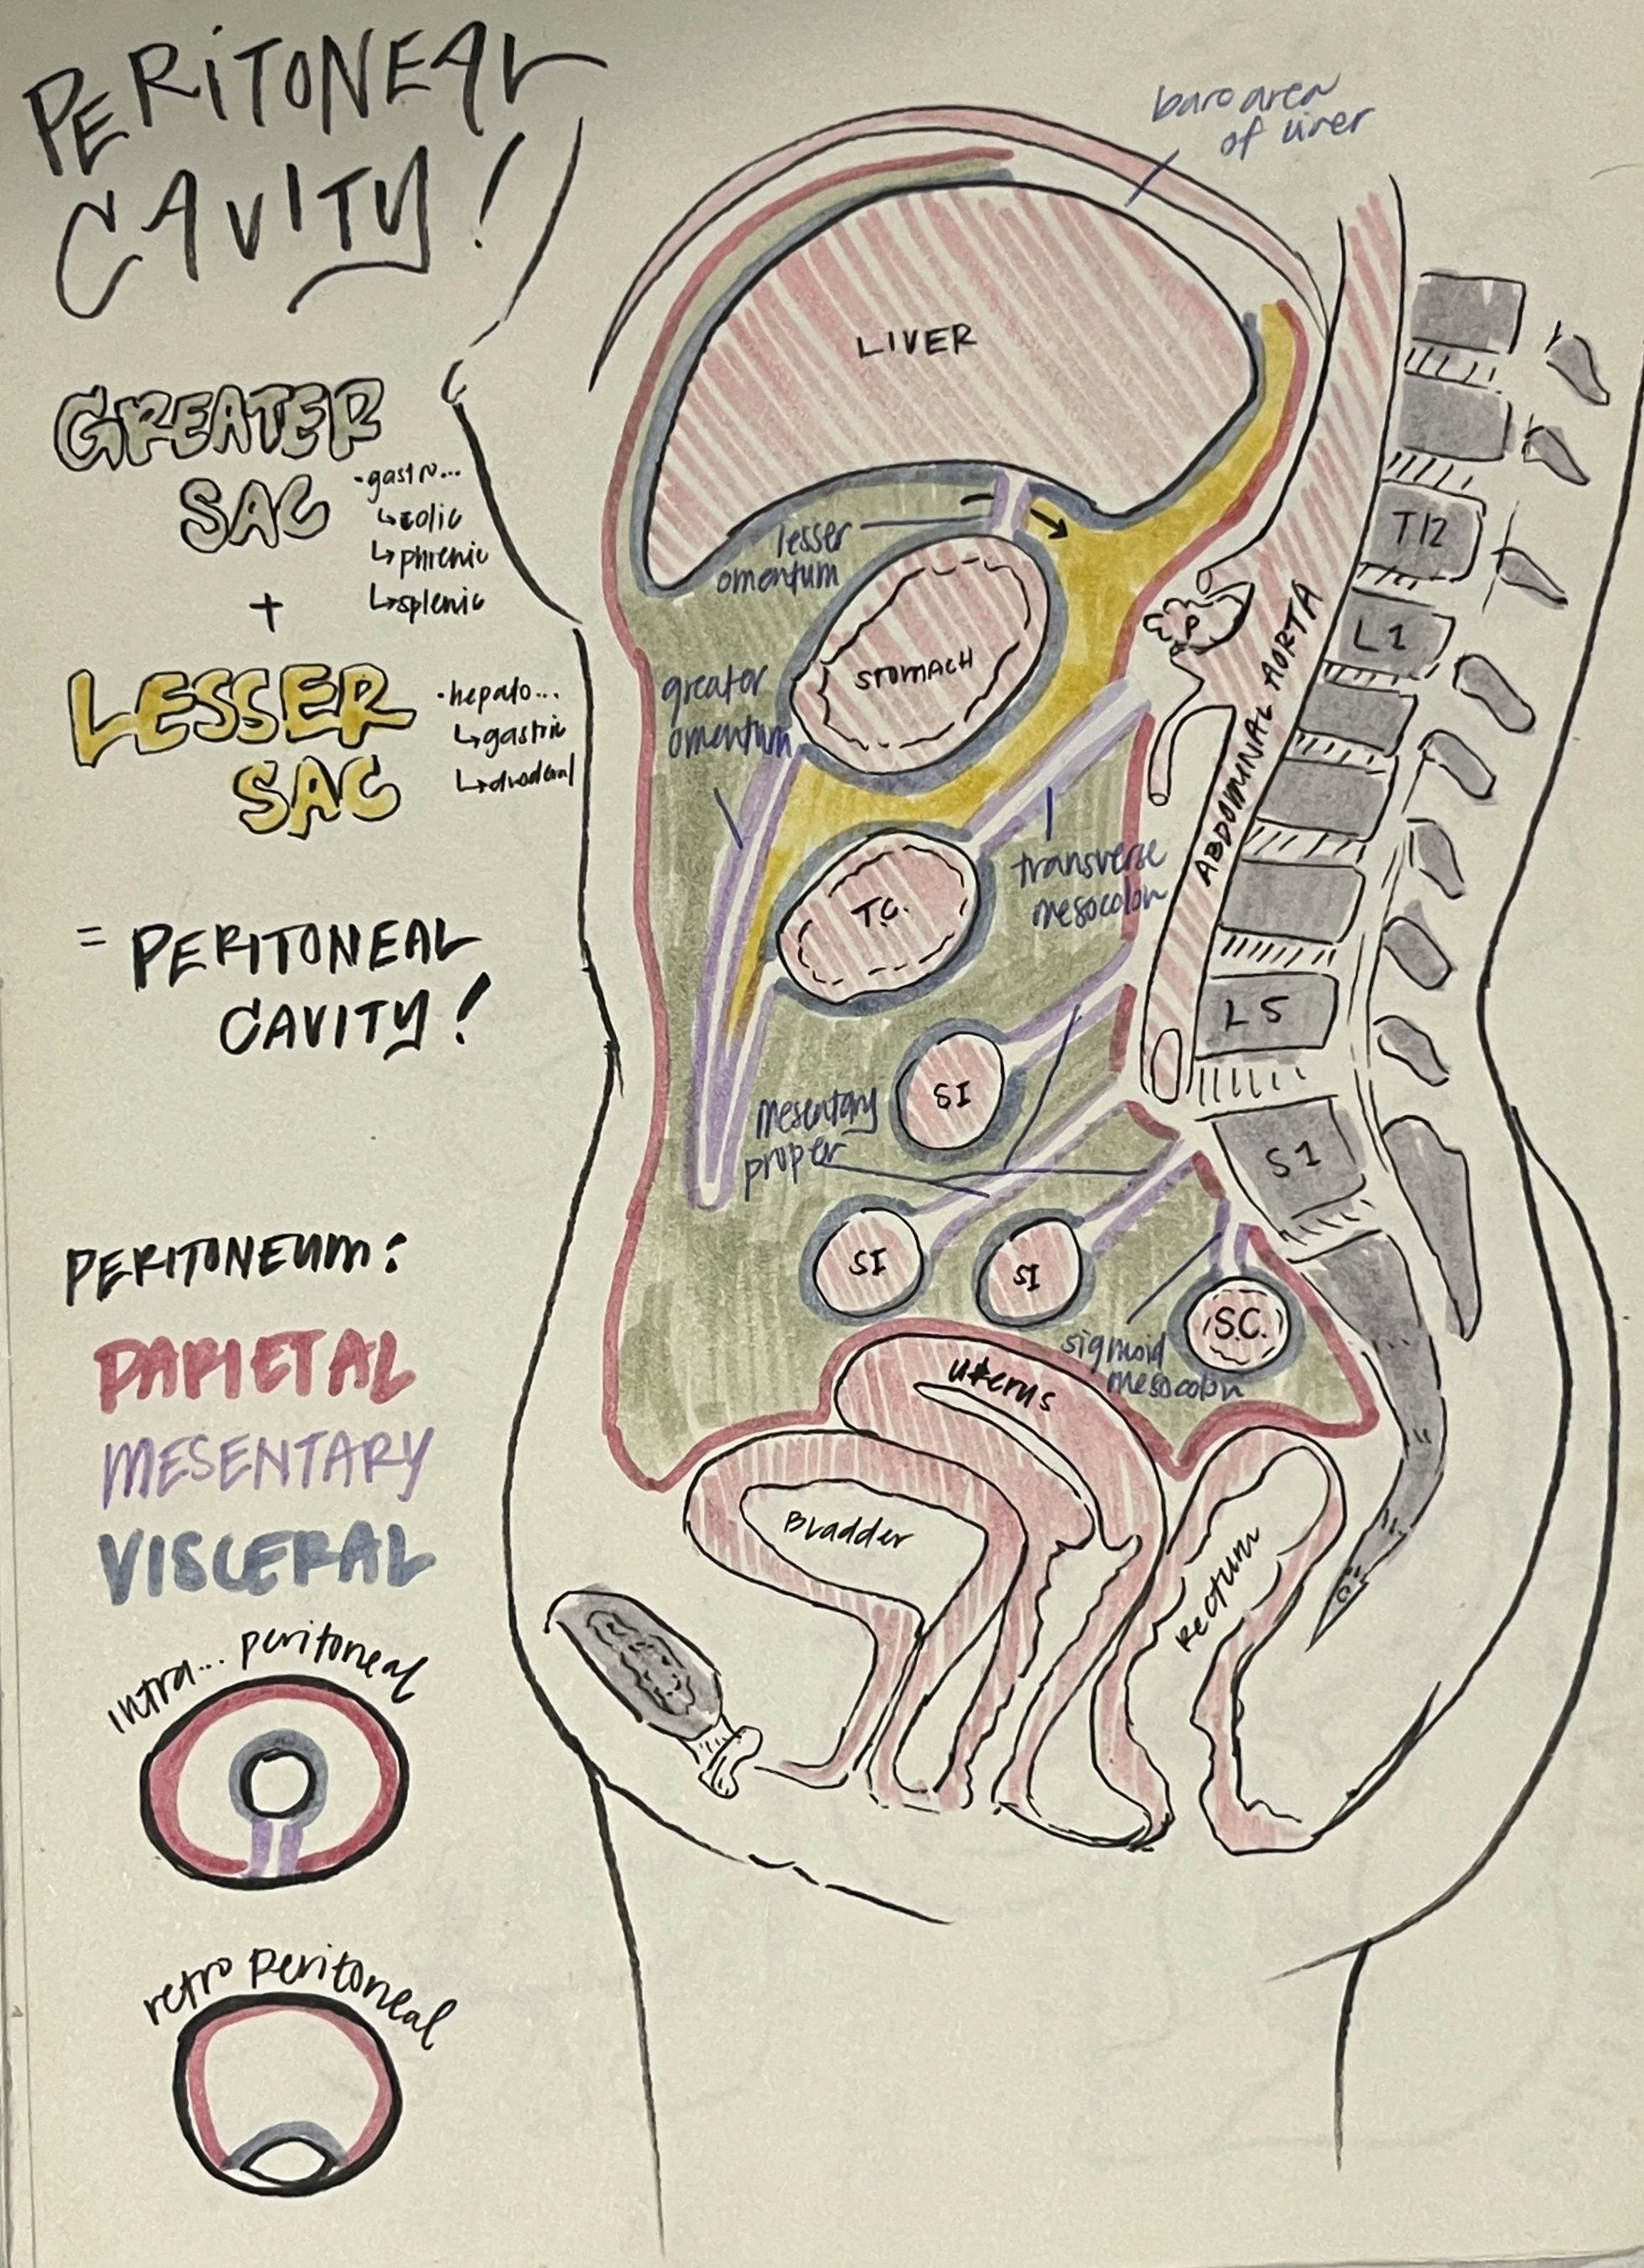 PERITONEAL
CAVITY!
GREATER
SAC
·gastro...
↳colic
↳phrenic
↳splenic
+
LESSER
SAC
·hepato...
↳gastric
↳duodenal
= PERITONEAL
CAVITY!
PERITONEUM:
PARIETAL
MESENTARY
VISCERAL
intra... peritoneal
retro peritoneal
bare area
of liver
LIVER
lesser
omentum
STOMACH
greater
omentum
P
T12
L1
ABDOMINAL AORTA
transverse
mesocolon
T.C.
L5
SI
mesentary
proper
S1
SI
SI
S.C.
sigmoid
mesocolon
uterus
Bladder
Rectum